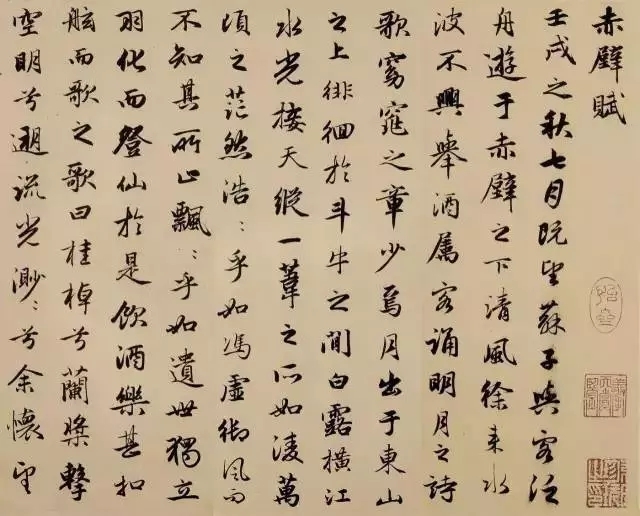 赤壁賦
壬戌之秋七月既望蘇子與客泛
舟遊于赤壁之下清風徐來水
波不興舉酒屬客誦明月之詩
歌窈窕之章少焉月出于東山
之上徘徊於斗牛之間白露橫江
水光接天縱一葦之所如淩萬
頃之茫然浩〻乎如馮虛御風而
不知其所止飄〻乎如遺世獨立
羽化而登仙於是飲酒樂甚扣
舷而歌之歌曰桂棹兮蘭槳擊
空明兮遡流光渺〻兮余懷望